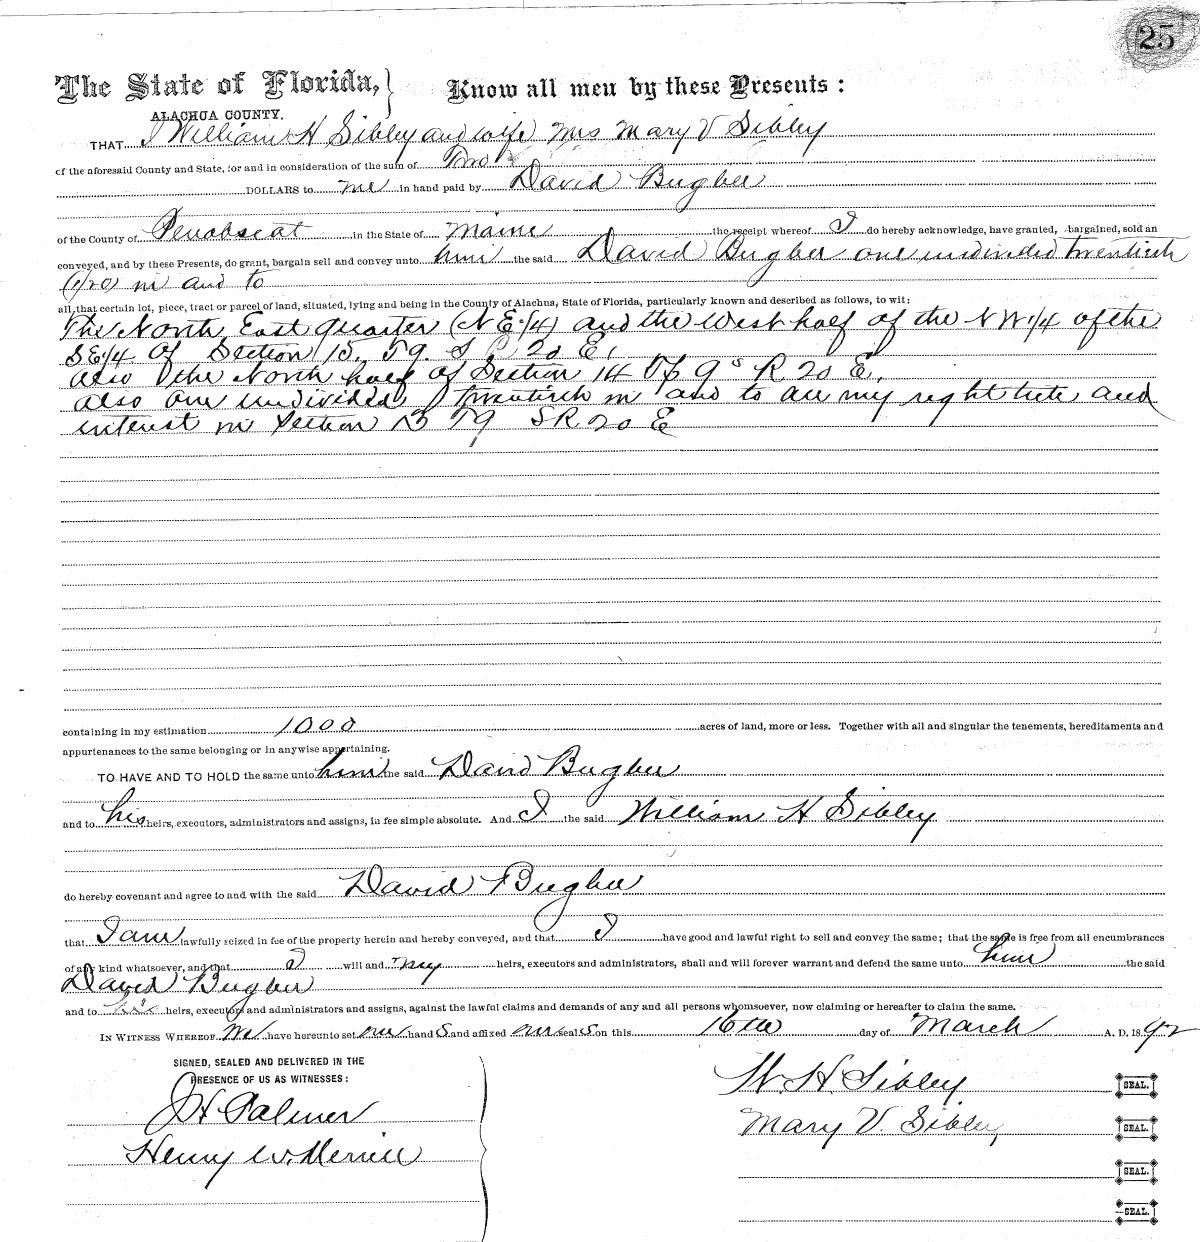 25
The State of Florida, } Know all men by these Presents :
ALACHUA COUNTY.
THAT I William H Sibley and wife Mrs Mary V Sibley
of the aforesaid County and State, for and in consideration of the sum of Two
DOLLARS to me in hand paid by David Bugbee
of the County of Penobscat in the State of Maine the receipt whereof I do hereby acknowledge, have granted, bargained, sold an
conveyed, and by these Presents, do grant, bargain sell and convey unto him the said David Bugbee one undivided twentieth
(1/20) in and to
all that certain lot, piece, tract or parcel of land, situated, lying and being in the County of Alachua, State of Florida, particularly known and described as follows, to wit:
The North East quarter (N E 1/4) and the West half of the N W 1/4 of the
S E 1/4 of Section 15, T 9. S R 20 E,
also the North half of Section 14 Tp 9 S R 20 E,
also one undivided twentieth in and to all my right title and
interest in Section 15 T 9 S R 20 E
containing in my estimation 1000 acres of land, more or less. Together with all and singular the tenements, hereditaments and
appurtenances to the same belonging or in anywise appertaining.
TO HAVE AND TO HOLD the same unto him the said David Bugbee
and to his heirs, executors, administrators and assigns, in fee simple absolute. And I the said William H Sibley
do hereby covenant and agree to and with the said David Bugbee
that I am lawfully seized in fee of the property herein and hereby conveyed, and that I have good and lawful right to sell and convey the same; that the same is free from all encumbrances
of any kind whatsoever, and that I will and my heirs, executors and administrators, shall and will forever warrant and defend the same unto him the said
David Bugbee
and to his heirs, executors and administrators and assigns, against the lawful claims and demands of any and all persons whomsoever, now claiming or hereafter to claim the same.
IN WITNESS WHEREOF We have hereunto set our hand s and affixed our seal s on this 16th day of March A. D. 18 92
SIGNED, SEALED AND DELIVERED IN THE
PRESENCE OF US AS WITNESSES:
J H Palmer
Henry W. Merrill
W. H. Sibley SEAL.
Mary V. Sibley SEAL.
SEAL.
SEAL.